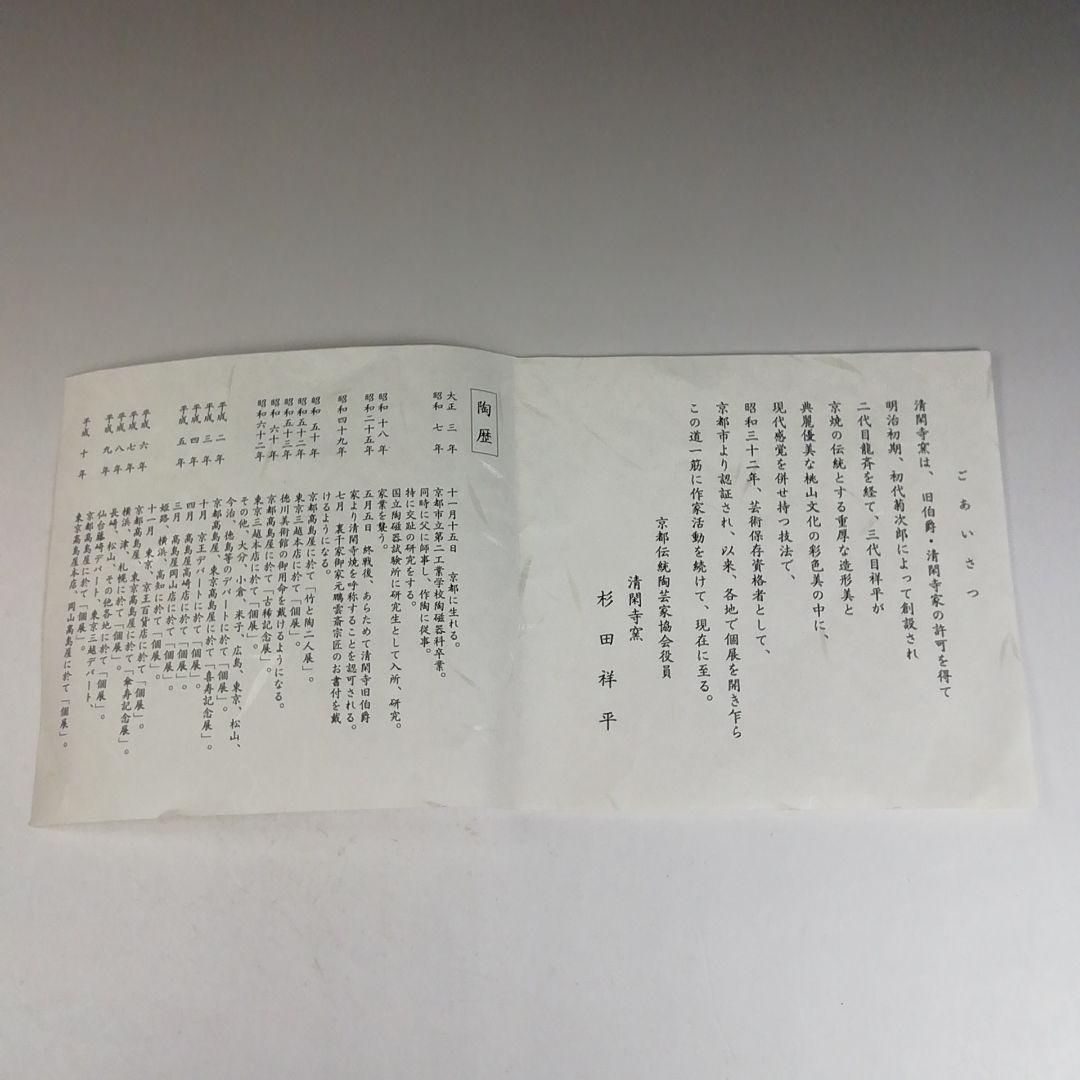 ごあいさつ
清閑寺窯は、旧伯爵・清閑寺家の許可を得て
明治初期、初代菊次郎によって創設され
二代目龍斉を経て、三代目祥平が
京焼の伝統とする重厚な造形美と
典麗優美な桃山文化の彩色美の中に、
現代感覚を併せ持つ技法で、
昭和三十二年、芸術保存資格者として、
京都市より認証され、以来、各地で個展を開き乍ら
この道一筋に作家活動を続けて、現在に至る。
京都伝統陶芸家協会役員
清閑寺窯
杉田祥平
陶歴
大正三年 十一月十五日 京都に生れる。
昭和七年 京都市立第二工業学校陶磁器科卒業。
同時に父に師事し、作陶に従事。
特に交趾の研究をする。
昭和十八年 国立陶磁器試験所に研究生として入所、研究。
家業を襲う。
昭和二十五年 五月五日 終戦後、あらためて清閑寺旧伯爵
家より清閑寺焼を呼称することを認可される。
昭和四十九年 七月 裏千家御家元鵬雲斎宗匠のお書付を戴
けるようになる。
昭和五十年 京都高島屋に於て「竹と陶二人展」。
昭和五十二年 東京三越本店に於て「個展」。
昭和五十三年 徳川美術館の御用命を戴けるようになる。
昭和六十年 京都高島屋に於て「古稀記念展」。
昭和六十二年 東京三越本店に於て「個展」。
その他、大分、小倉、米子、広島、東京、松山、
今治、徳島等のデパートに於て「個展」。
平成二年 京都高島屋、東京高島屋に於て「喜寿記念展」。
平成三年 十月 京王デパートに於て「個展」。
平成四年 四月 高島屋高崎店に於て「個展」。
平成五年 三月 高島屋岡山店に於て「個展」。
姫路、横浜、高知に於て「個展」。
十一月 東京、京王百貨店に於て「個展」。
平成六年 京都高島屋、東京高島屋に於て「傘寿記念展」。
平成七年 横浜、津、札幌に於て「個展」。
平成八年 長崎、松山、その他各地に於て「個展」。
平成九年 仙台藤崎デパート、東京三越デパート、
京都高島屋に於て「個展」。
平成十年 東京高島屋本店、岡山高島屋に於て「個展」。